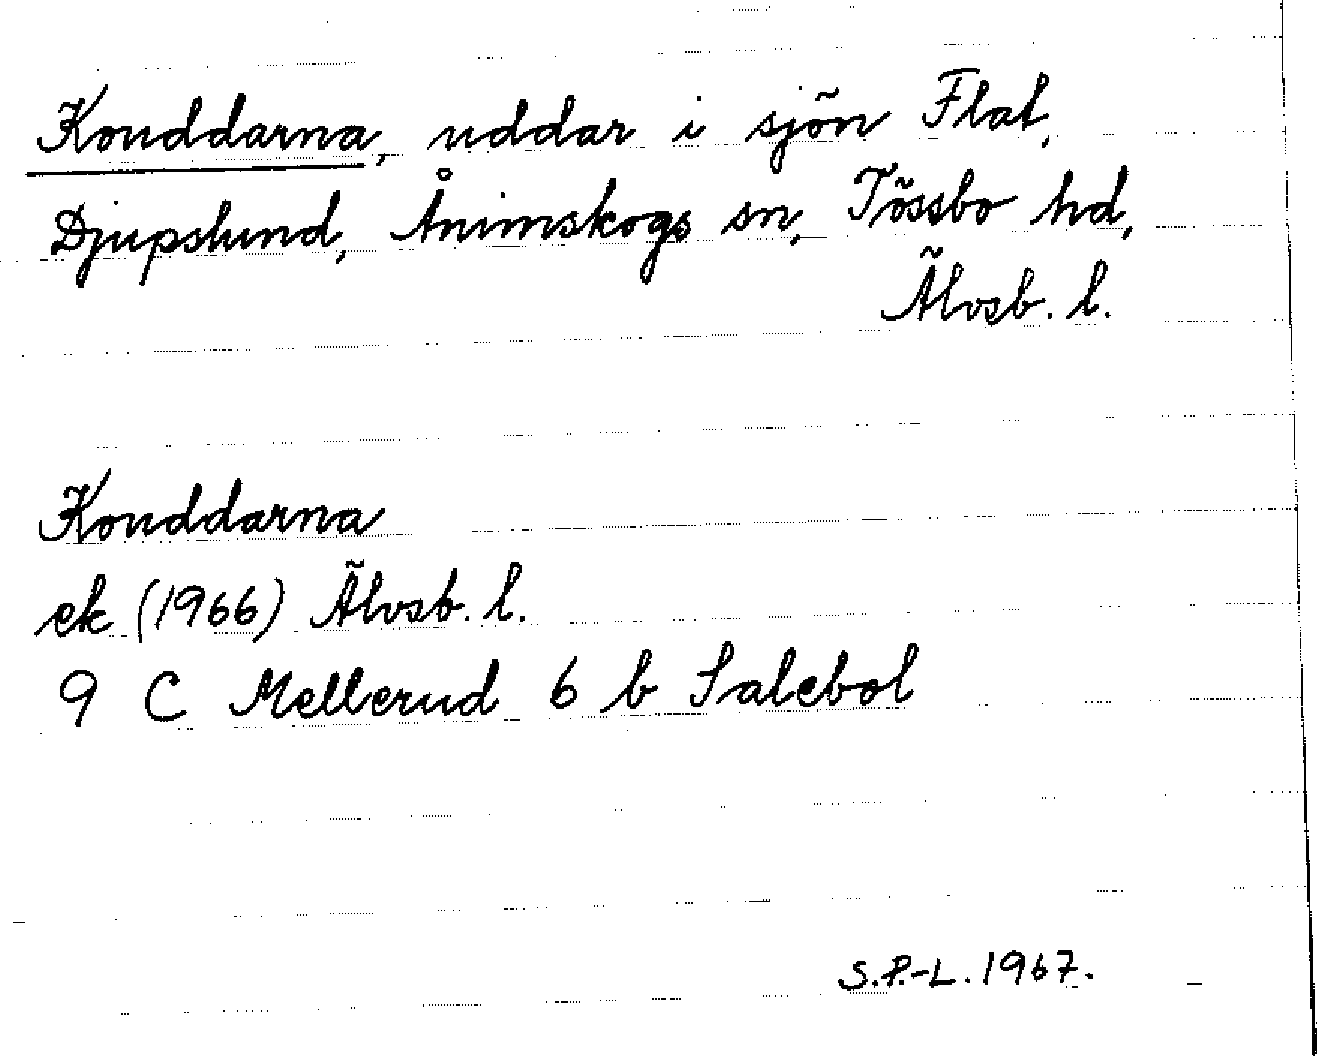 Kouddarna, uddar i sjön Flat,
Djupslund, Ånimskogs sn, Tössbo hd,
Älvsb. l.
Kouddarna
ek (1966) Älvsb. l.
9 C Mellerud 6 b Salebol
S.P.-L. 1967.